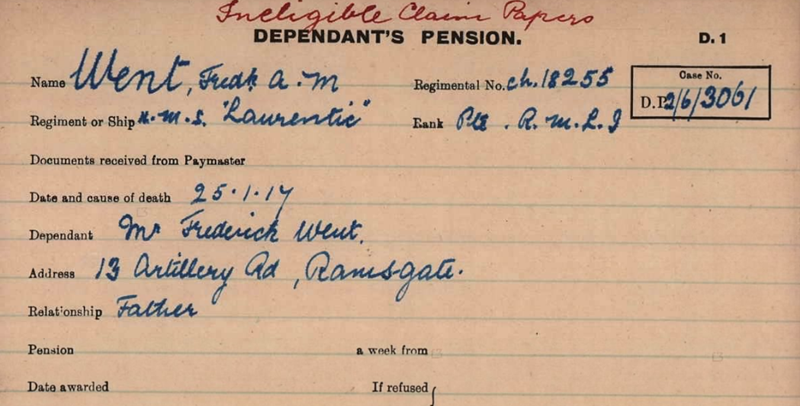 Ineligible Claim Papers
DEPENDANT'S PENSION. D. 1
Name Went, Fredk A. M Regimental No. Ch. 18255 Case No.
Regiment or Ship H. M. S. "Laurentic" Rank Pte. R. M. L. I D.P. 2/6/3061
Documents received from Paymaster
Date and cause of death 25.1.17
Dependant Mr Frederick Went.
Address 13 Artillery Rd, Ramsgate.
Relationship Father
Pension a week from
Date awarded If refused